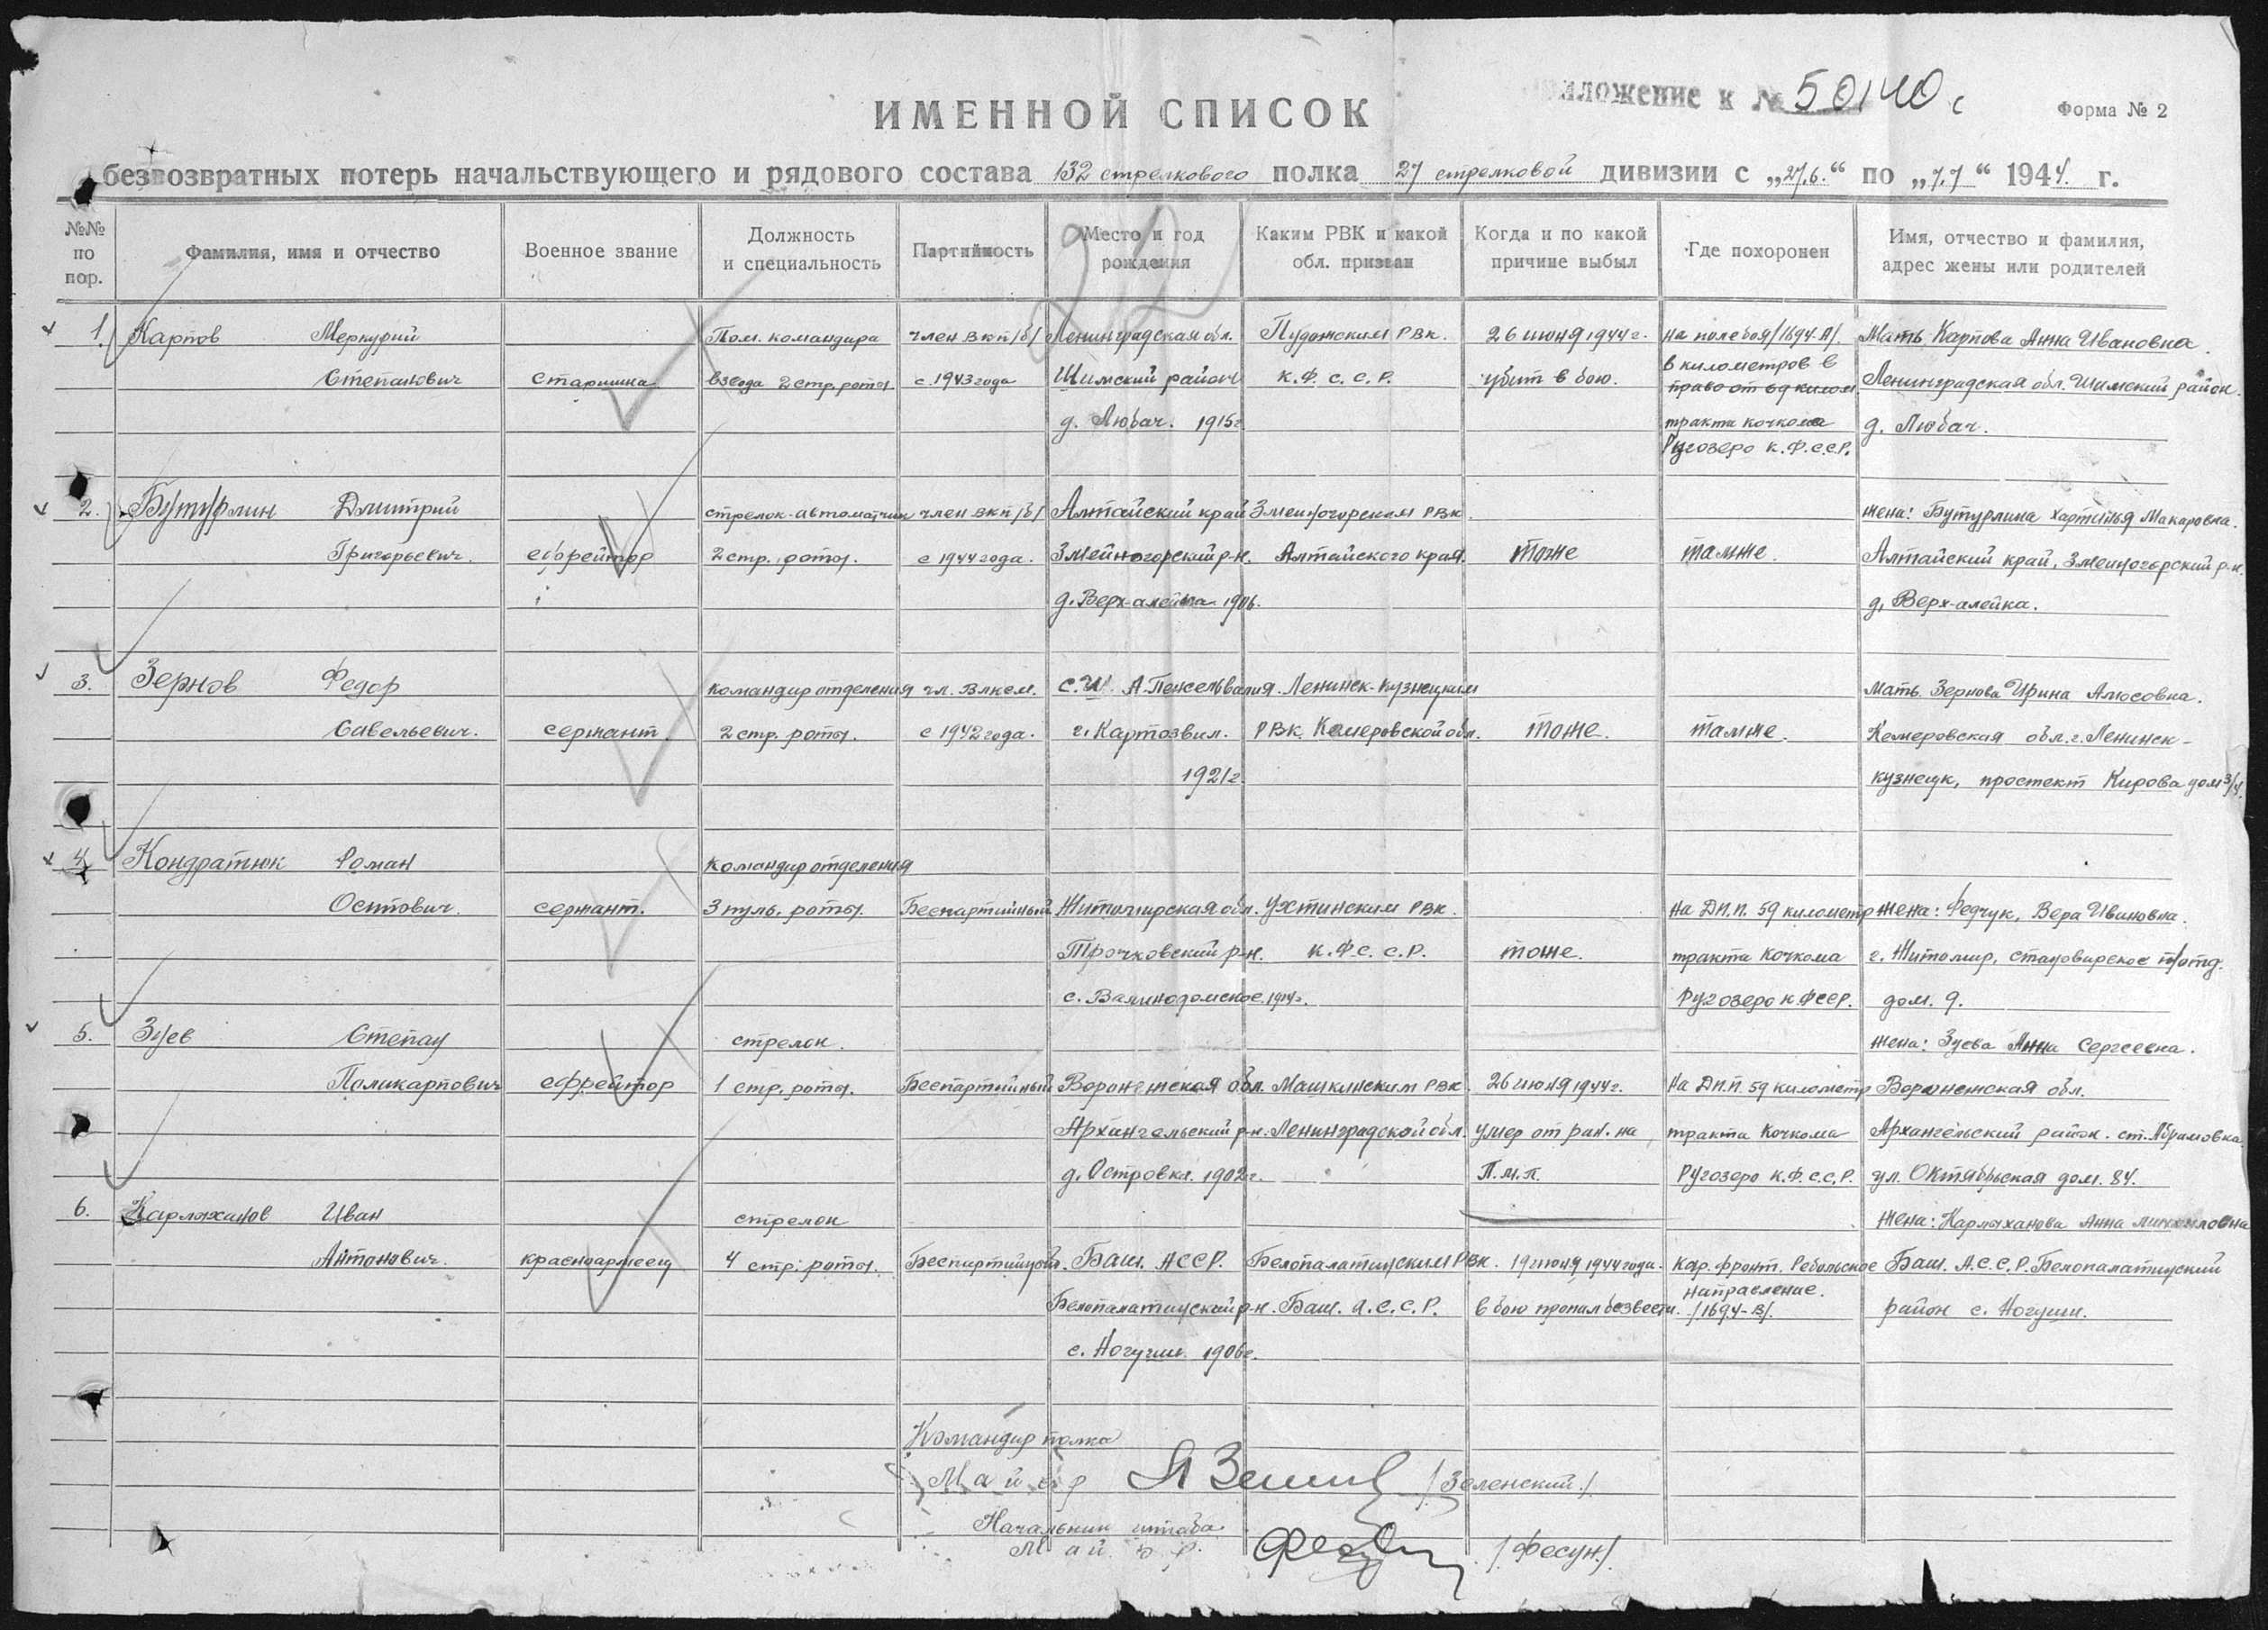 ИМЕННОЙ СПИСОК
иложение к № 50140 с
Форма № 2
безвозвратных потерь начальствующего и рядового состава 132 стрелкового полка 27 стрелковой дивизии с „27.6.“ по „7.7“ 1944. г.
№№ по пор.
Фамилия, имя и отчество
Военное звание
Должность и специальность
Партийность
Место и год рождения
Каким РВК и какой обл. призван
Когда и по какой причине выбыл
Где похоронен
Имя, отчество и фамилия, адрес жены или родителей
1. Карпов Меркурий Пом. командира член ВКП/б/ Ленинградская обл. Пудожским РВК. 26 июня 1944 г. на поле боя /1694-А/. Мать Карпова Анна Ивановна.
Степанович старшина взвода 2 стр. роты с 1943 года Шимский район К.Ф.С.С.Р. убит в бою. 8 километров в право от 59 килом. Ленинградская обл. Шимский район.
д. Любач. 1915 г. тракта Кочкома д. Любач.
Ругозеро К.Ф.С.С.Р.
2. Бутурлин Дмитрий стрелок-автоматчик член ВКП/б/ Алтайский край Змеиногорским РВК жена: Бутурлина Макаровна.
Григорьевич. ефрейтор 2 стр. роты. с 1944 года. Змейногорский р-н. Алтайского края. тоже тамже. Алтайский край, Змеиногорский р-н.
д. Верх-алейка 1906. д. Верх-алейка.
3. Зернов Федор командир отделения чл. ВЛКСМ. С.Ш.А. Пенсельвания. Ленинск-Кузнецким мать Зернова Ирина Амосовна.
Савельевич. сержант. 2 стр. роты. с 1942 года. г. Картозвил. РВК. Кемеровской обл. тоже. тамже. Кемеровская обл. г. Ленинск-
1921 г. кузнецк, проспект Кирова дом 3/4.
4. Кондратюк Роман командир отделения
Оситович. сержант. 3 пуль. роты. Беспартийный Житомирская обл. Ухтинским РВК. на Д.П.П. 59 километр жена: Федчук, Вера Ивановна.
Трочковский р-н. К.Ф.С.С.Р. тоже. тракта Кочкома г. Житомир,
1914 г. Ругозеро К.ФССР. дом. 9.
5. Зуев Степан стрелок. жена: Зуева Анна Сергеевна.
Поликарпович ефрейтор 1 стр. роты. Беспартийный Воронежская обл. Машкинским РВК. 26 июня 1944 г. На Д.П.П. 59 километр Воронежская обл.
Архангельский р-н. Ленинградской обл. умер от ран. на тракта Кочкома Архангельский район. ст. Абрамовка
д. Островка. 1902 г. П.М.П. Ругозеро К.Ф.С.С.Р. ул. Октябрьская дом. 84.
6. Карлыханов Иван стрелок жена: Карлыханова Анна Михайловна
Антонович. красноармеец 4 стр. роты. Беспартийный. Баш. АССР. Белопалатинским РВК. 19 июня 1944 года. Кар. фронт. Ребольское Баш. А.С.С.Р. Белопалатинский
Белопалатинский р-н. Баш. А.С.С.Р. в бою пропал безвести. направление. /1694-В/. район с. Ногуши.
с. Ногуши. 1906 г.
Командир полка
Майор /Зеленский/
Начальник штаба
Майор. /Фесун./